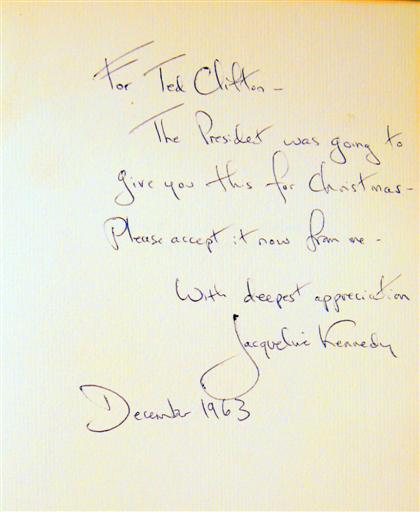 For Ted Clifton -
The President was going to
give you this for Christmas -
Please accept it now from me -
With deepest appreciation
Jacqueline Kennedy
December 1963